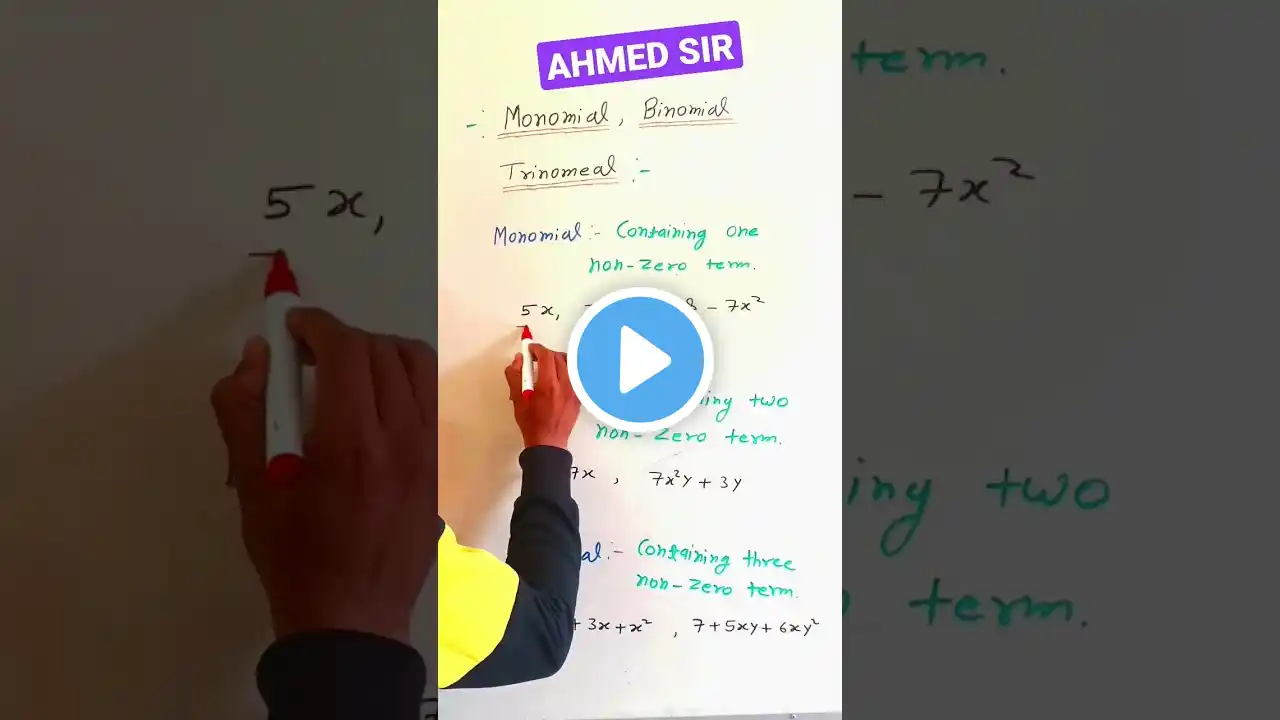 AHMED SIR
-: Monomial, Binomial
Trinomeal :-
Monomial :- Containing one
non-Zero term.
5x, - 7x²
two
non-Zero term.
7x , 7x²y + 3y
:- Containing three
non-Zero term.
+ 3x + x² , 7 + 5xy + 6xy²
term.
5x,
- 7x²
two
term.